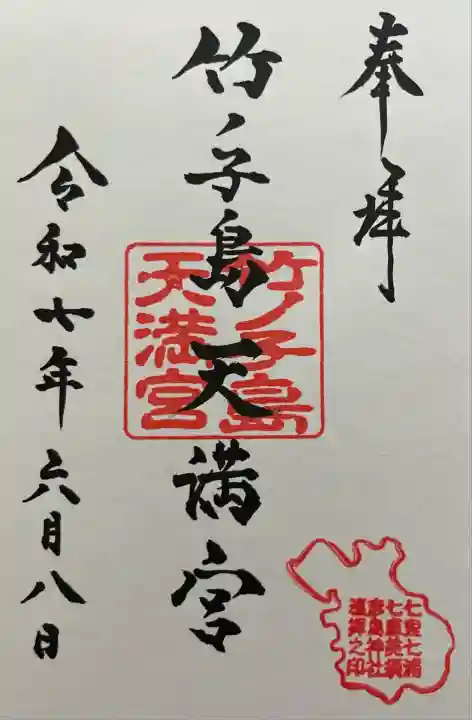 奉拝
竹ノ子島天満宮
竹ノ子島
天満宮
令和七年六月八日
七里七浦
七恵比須
恵島神社
遥拝之印